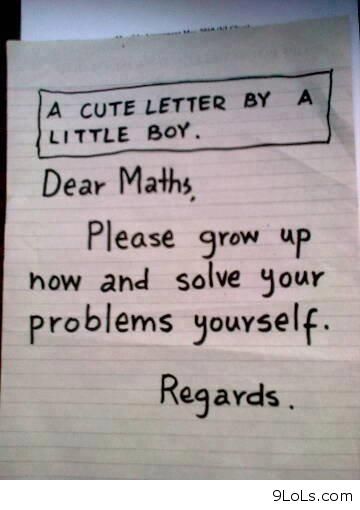 A CUTE LETTER BY A
LITTLE BOY.
Dear Maths,
Please grow up
now and solve your
problems yourself.
Regards.
9LoLs.com